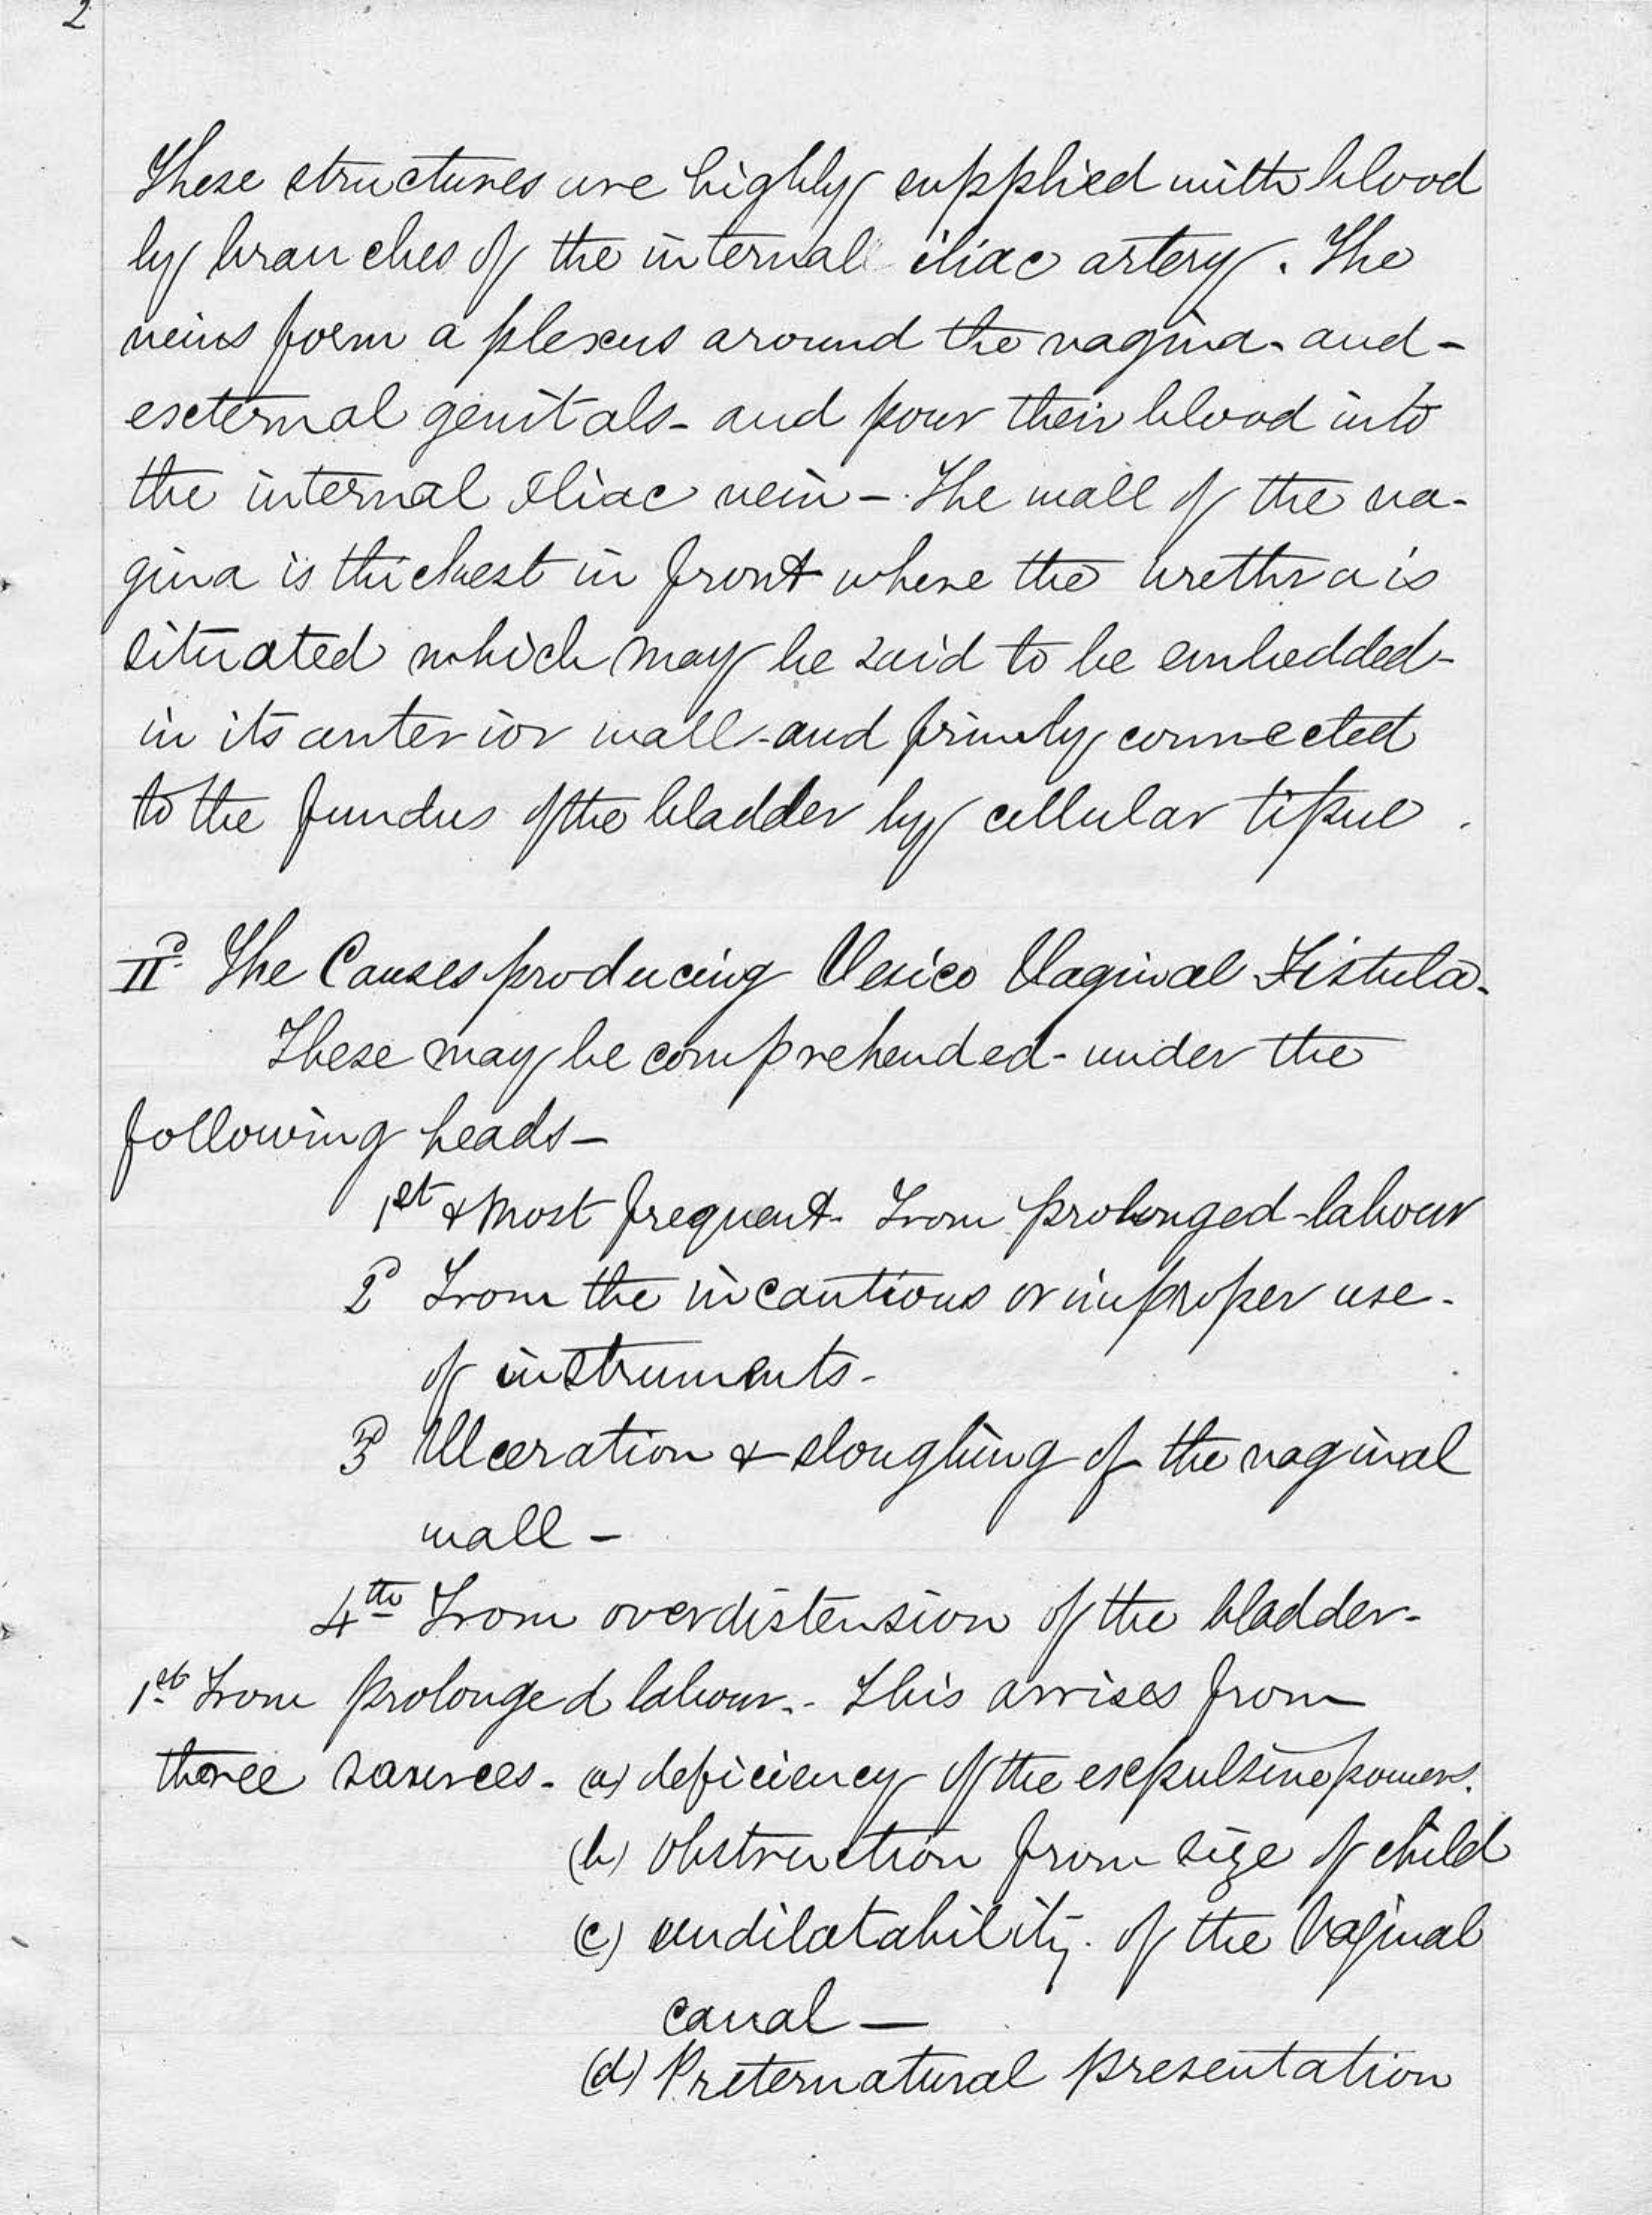 2
These structures are highly supplied with blood
by branches of the internal iliac artery. The
veins form a plexus around the vagina - and -
external genitals - and pour their blood into
the internal Iliac vein - The wall of the va-
gina is thickest in front where the urethra is
situated which may be said to be embedded -
in its anterior wall - and firmly connected
to the fundus of the bladder by cellular tissue.
IId. The Causes producing Vesico Vaginal Fistula.
These may be comprehended - under the
following heads -
1st & Most frequent - From prolonged - labour
2d From the incautious or improper use -
of instruments -
3d Ulceration & sloughing of the vaginal
wall -
4th From overdistension of the bladder -
1st From prolonged labour. - This arrises from
three sources - (a) deficiency of the expulsive powers.
(b) obstruction from size of child
(c) undilatability. of the Vaginal
canal —
(d) Preternatural presentation